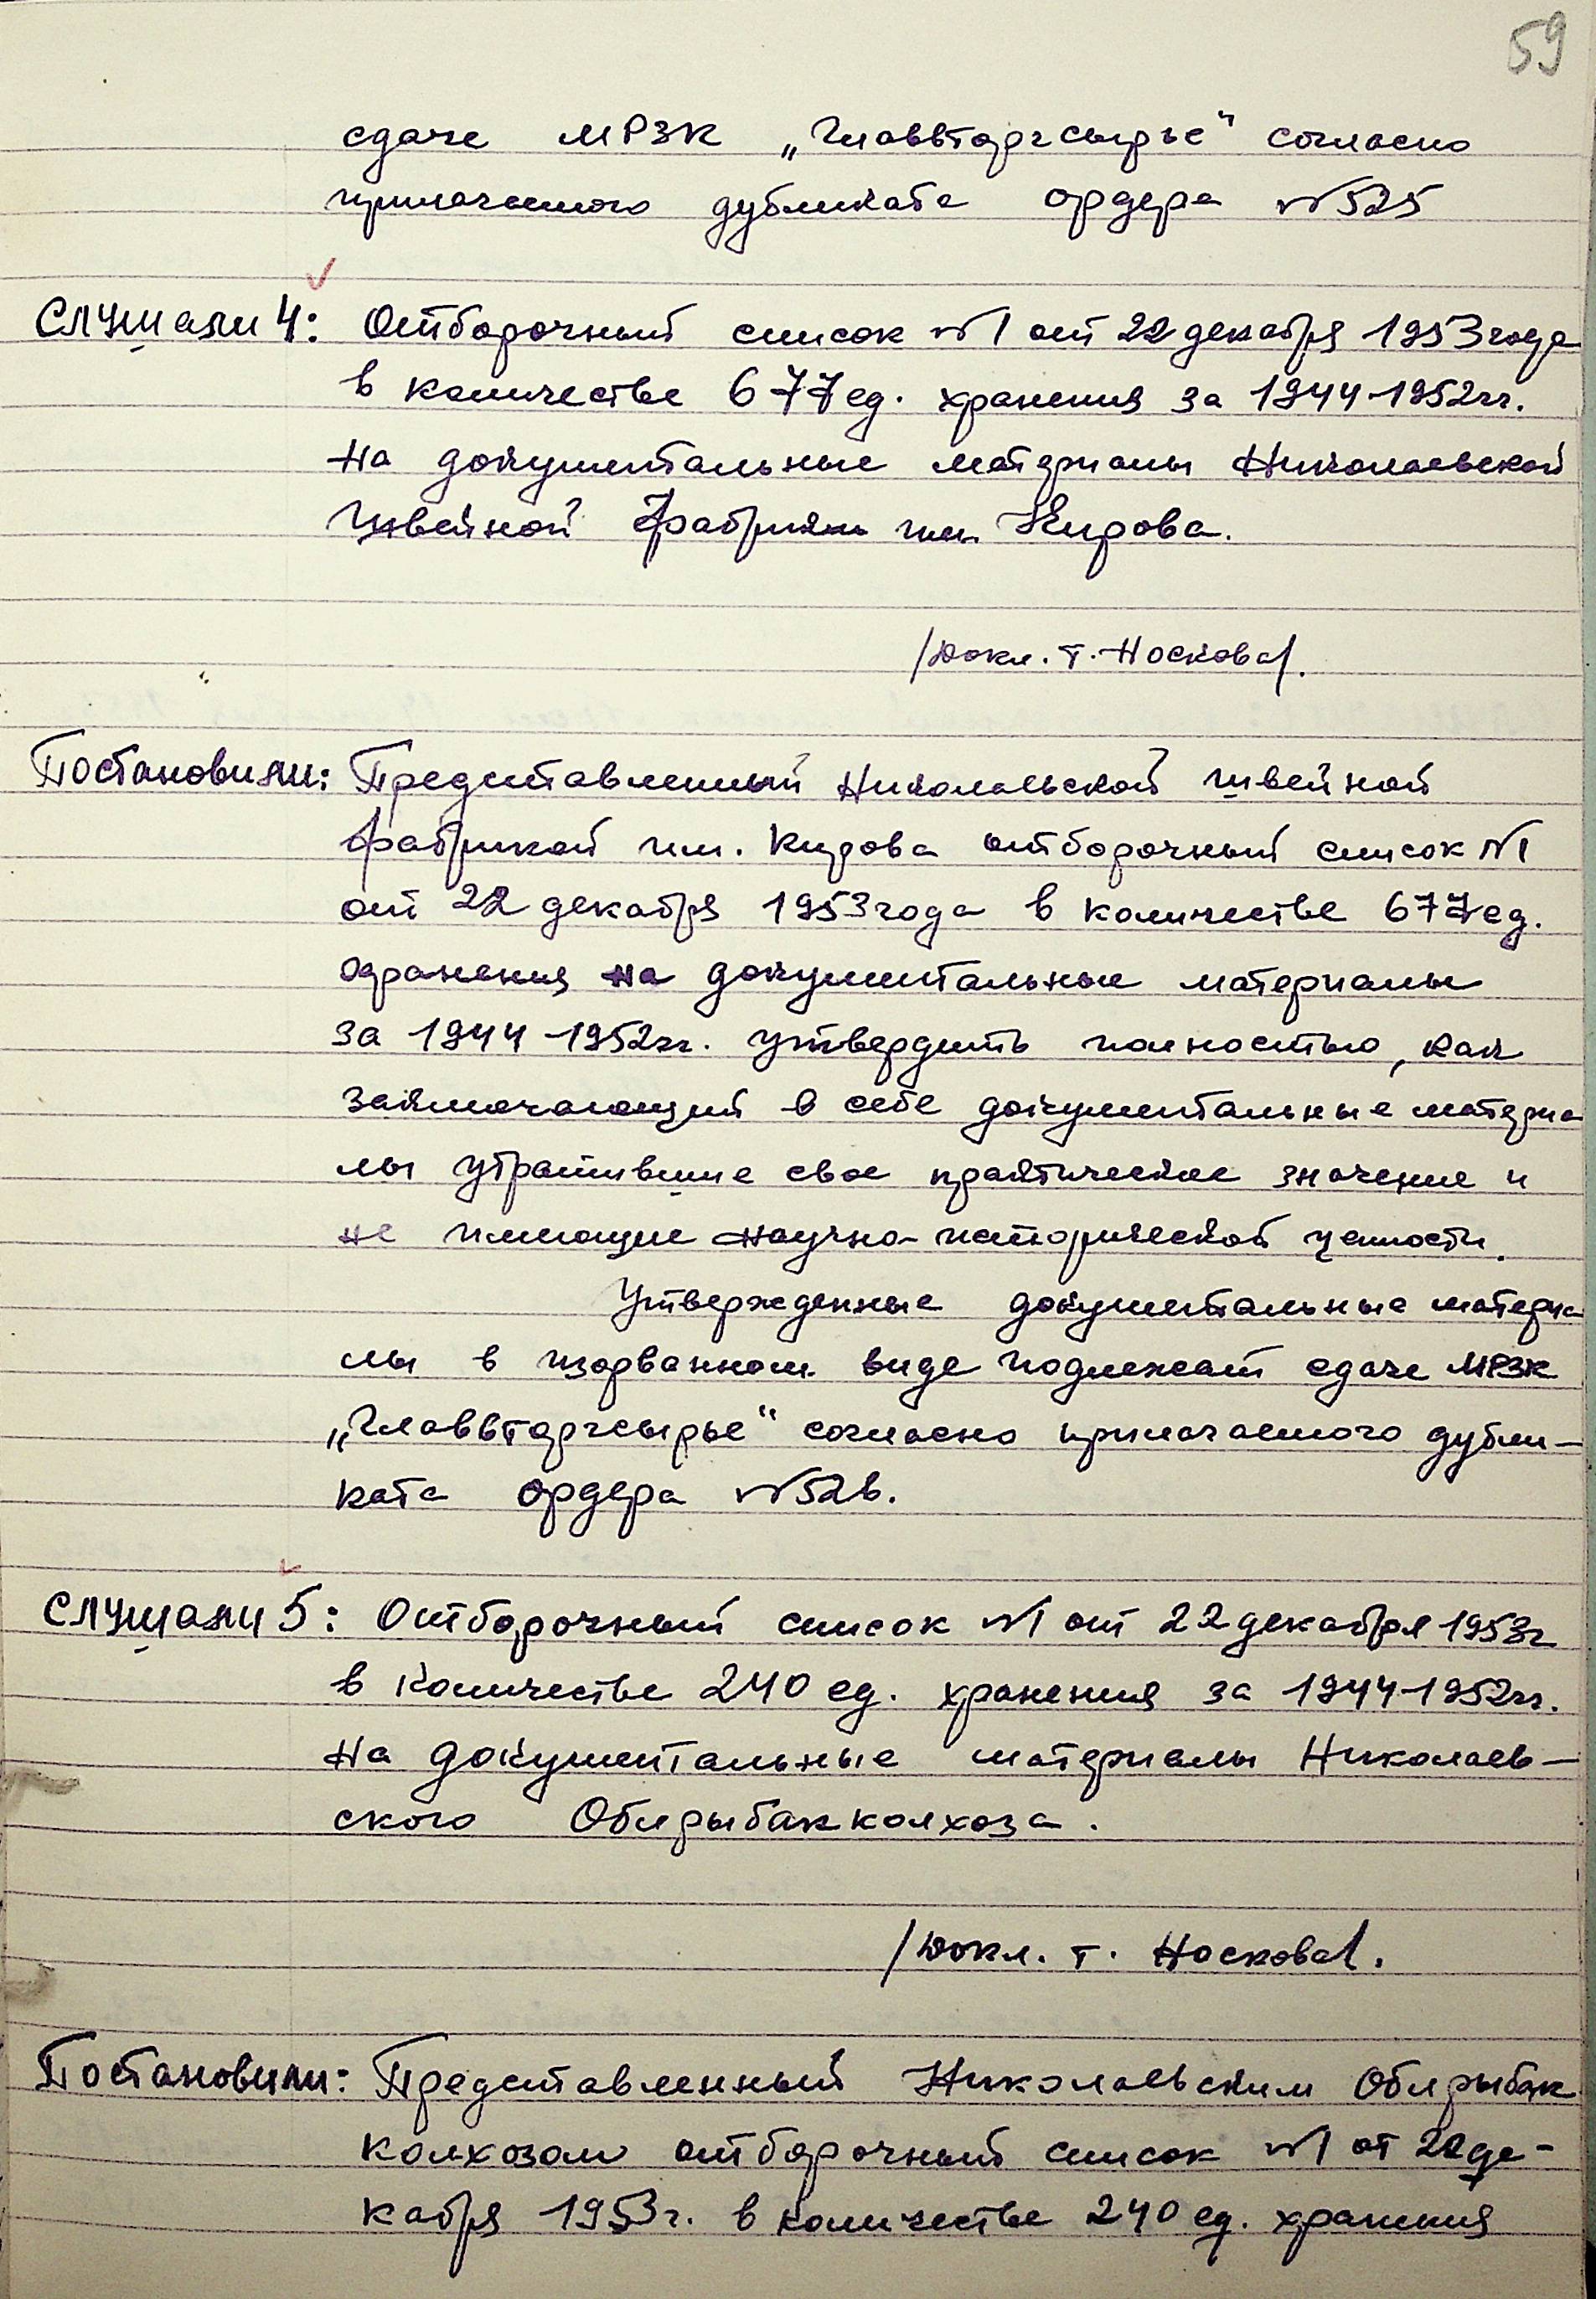 59
сдаче МРЗК „Главвторгсырье" согласно
прилагаемого дубликата ордера №525
Слушали 4: Отборочный список №1 от 22 декабря 1953 года
в количестве 677 ед. хранения за 1944-1952гг.
на документальные материалы Николаевской
швейной фабрики им. Кирова.
/Докл. т. Носкова/.
Постановили: Представленный Николаевской швейной
фабрикой им. Кирова отборочный список №1
от 22 декабря 1953 года в количестве 677 ед.
хранения на документальные материалы
за 1944-1952гг. утвердить полностью, как
заключающий в себе документальные материа
лы утратившие свое практическое значение и
не имеющие научно-исторической ценности.
Утвержденные документальные материа
лы в изорванном виде подлежат сдаче МРЗК
„Главвторгсырье" согласно прилагаемого дубли-
ката ордера №526.
Слушали 5: Отборочный список №1 от 22 декабря 1953г
в количестве 240 ед. хранения за 1944-1952гг.
на документальные материалы Николаев-
ского Облрыбакколхоза.
/Докл. т. Носкова/.
Постановили: Представленный Николаевским Облрыбак
колхозом отборочный список №1 от 22 де-
кабря 1953г. в количестве 240 ед. хранения